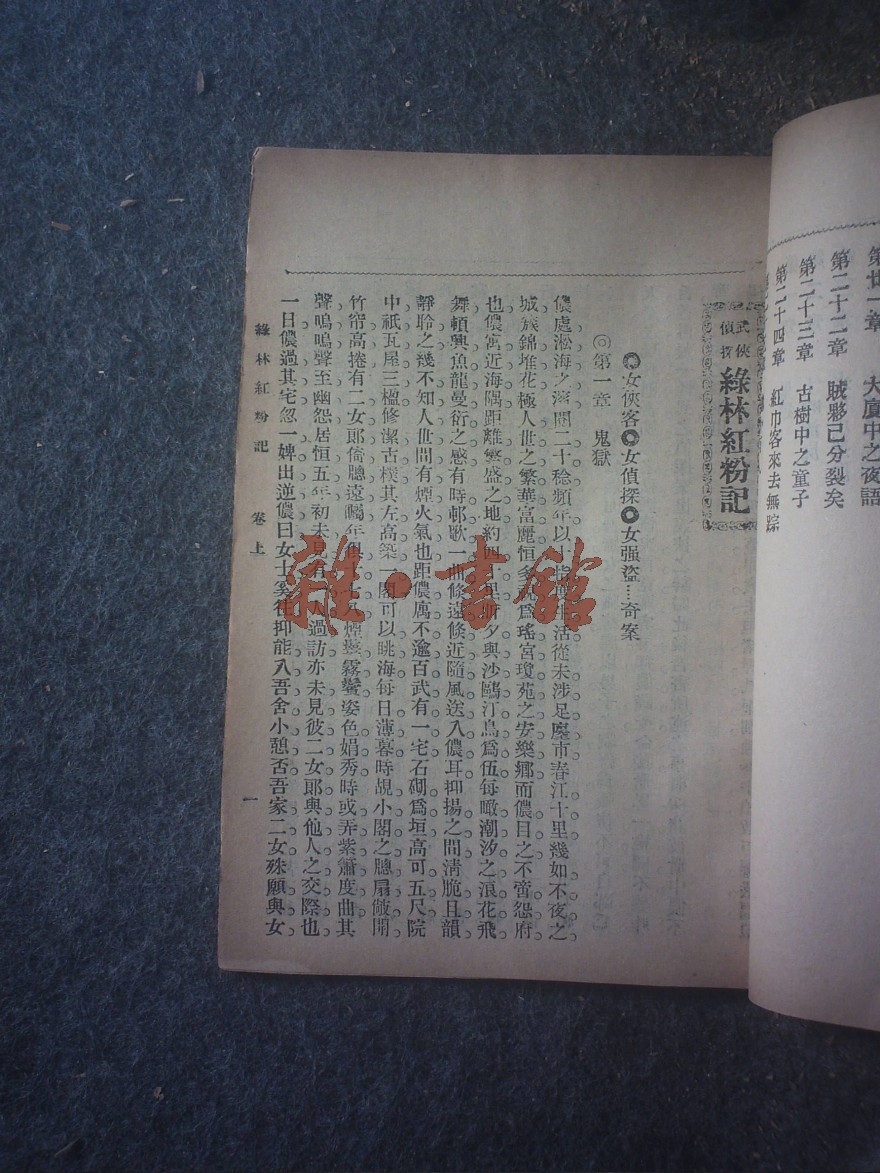 第廿一章　大廈中之夜語
第二十二章　賊夥已分裂矣
第二十三章　古樹中之童子
第二十四章　紅巾客來去無踪
武俠偵探 綠林紅粉記
◎女俠客◎女偵探◎女强盜……奇案
◎第一章　鬼獄
儂處淞海之濱。閱二十稔。頻年以。生活。從未涉足廛市。春江十里。幾如不夜之
城。簇錦堆花。極人世之繁華富麗。恒多。爲瑤宮瓊苑之安樂鄉。而儂目之不啻怨府
也。儂寓近海隅。距離繁盛之地約四十里。夕與沙鷗汀鳥爲伍。每瞰潮汐之浪花飛
舞。頓興魚龍曼衍之感。有時邨歌一曲。倏遠倏近。隨風送入儂耳。抑揚之間。清脆且韻。
靜聆之。幾不知人世間有煙火氣也。距儂寓不逾百武。有一宅。石砌爲垣。高可五尺。院
中祇瓦屋三楹。修潔古樸。其左高築一閣。可以眺海。每日薄暮時。覘小閣之牕扇敞開。
竹帘高捲。有二女郎倚牕遠矚。年俱。煙鬟霧鬢。姿色娟秀。時或弄紫簫度曲。其
聲嗚嗚。聲至幽怨。居恒五年。初未見有人過訪。亦未見彼二女郎與他人之交際也。
一日儂過其宅。忽一婢出逆儂曰。女士奚往。抑能入吾舍小憩否。吾家二女殊願與女
綠林紅粉記　卷上
一
雜·書館